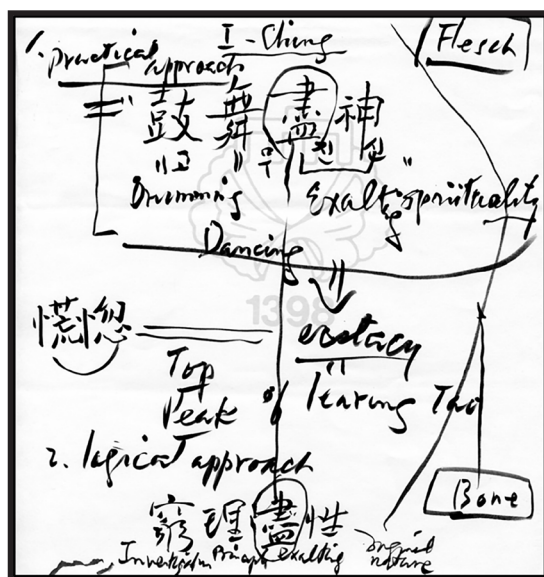 I-Ching
Flesch
1. Practical approach
鼓舞盡神
고 무 진 신
Drumming Exalting spirituality
Dancing
1398
慌惚 ecstacy
Top
Peak of learning Tao
2. logical approach
Bone
窮理盡性
Investigation Principle exalting original nature